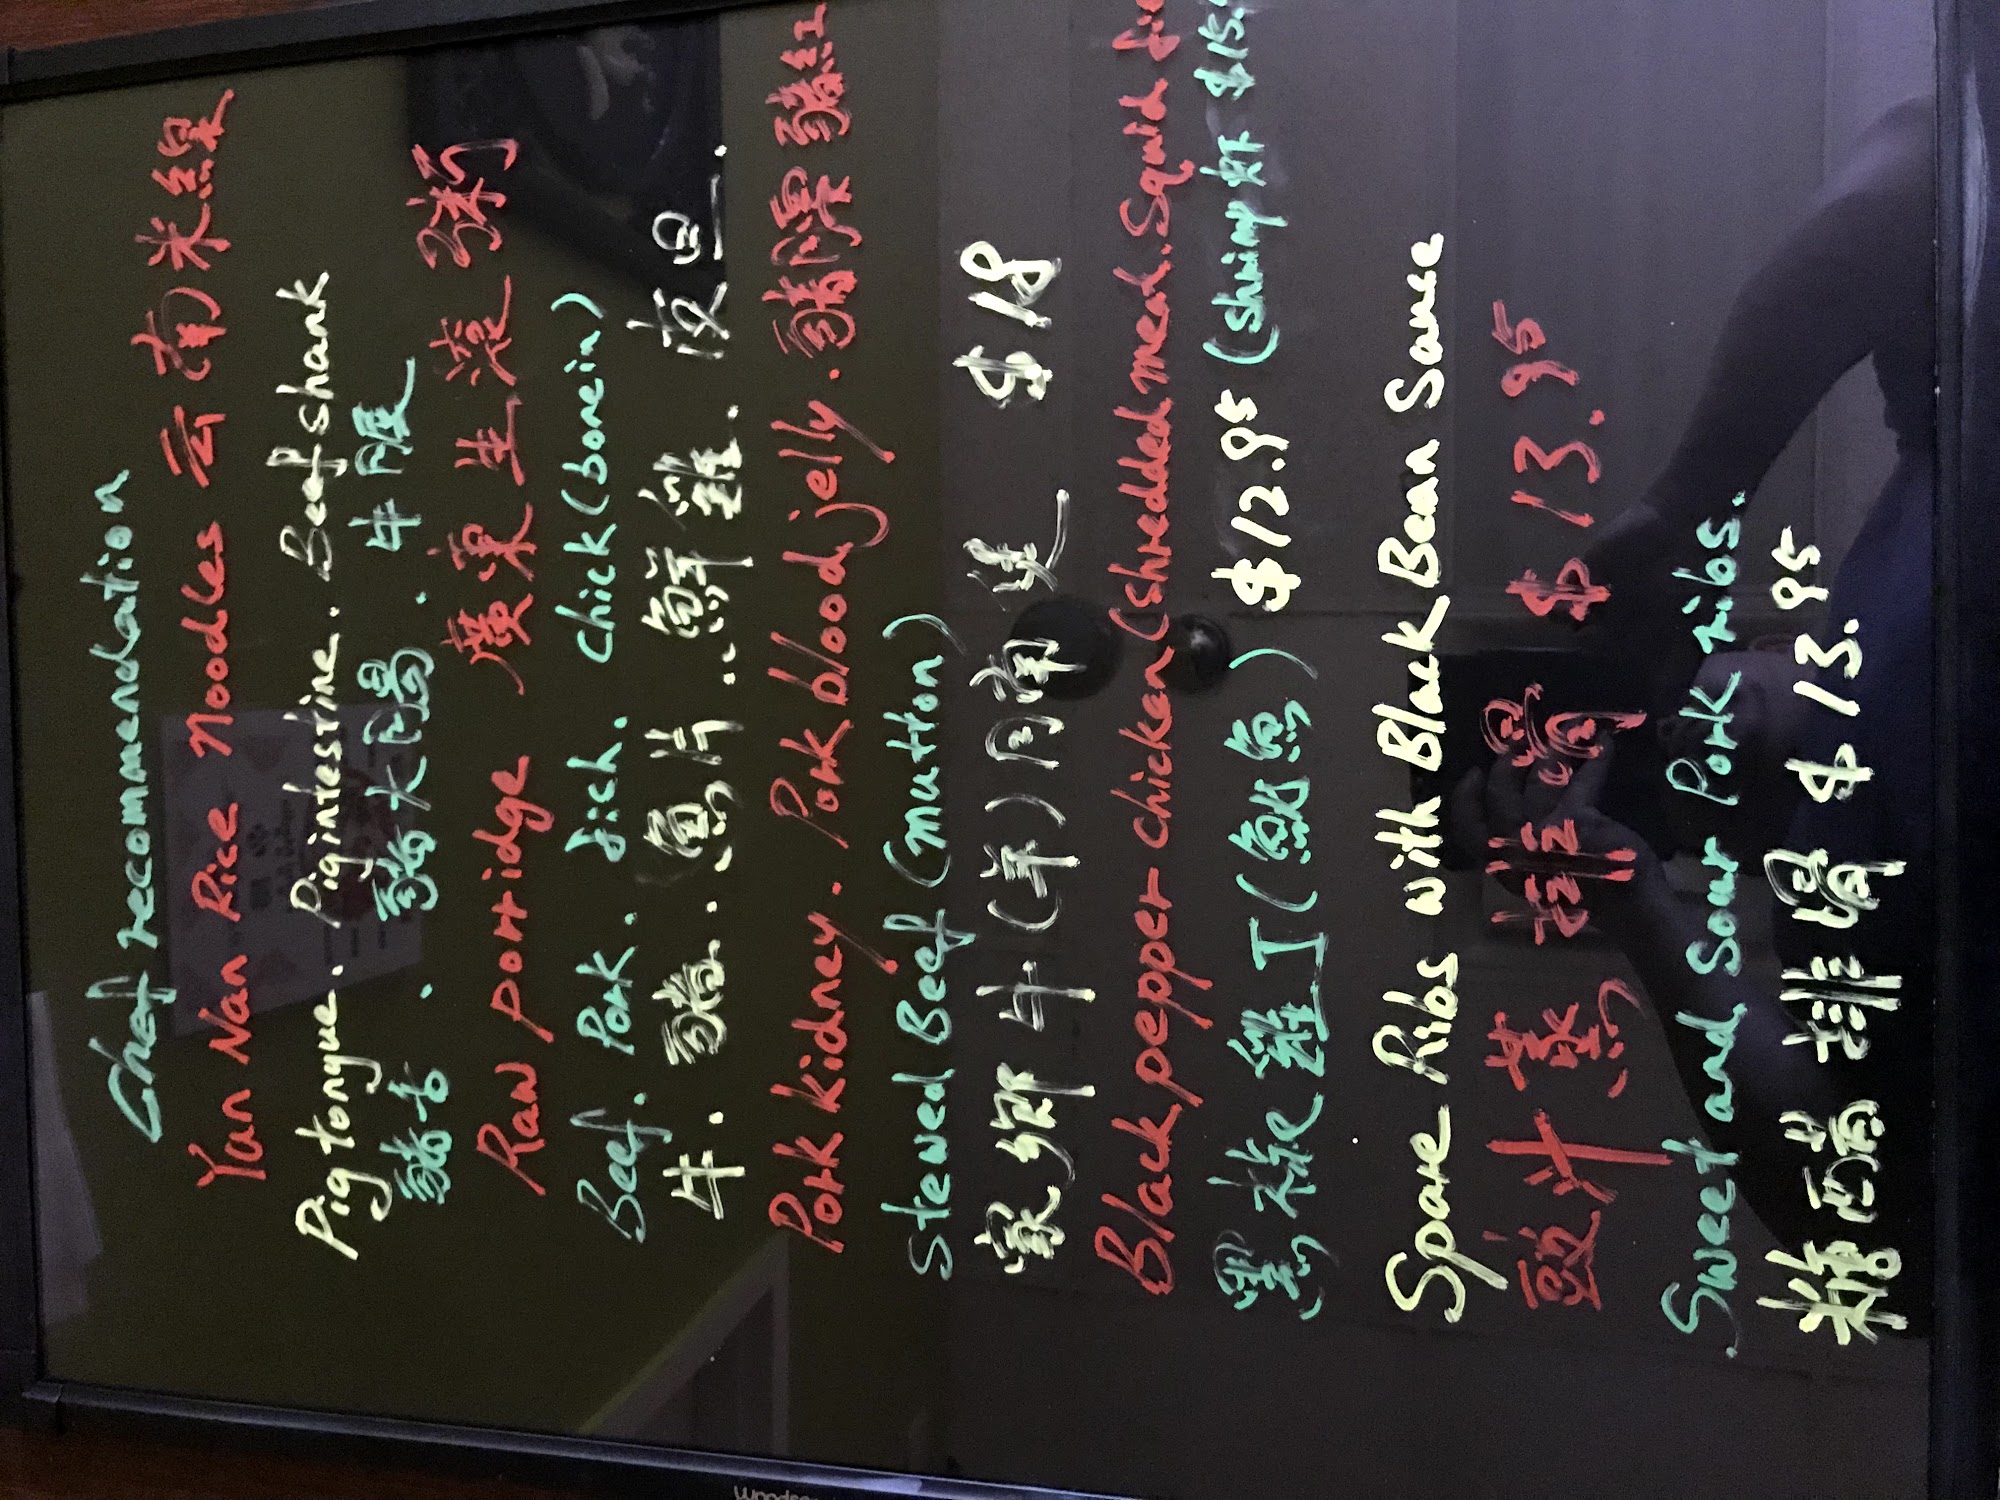 Chef recommendation
Yun Nan Rice noodles 云南米線
Pig tongue. Pig intestine. Beef shank
豬舌. 豬大腸. 牛腱
Raw porridge 廣東生滾粥
Beef. Pork. fish. chick (bonein)
牛. 豬.. 魚片.. 鲜雞. 皮旦.
Pork kidney. Pork blood jelly. 豬腰 豬红
Stewed Beef (mutton)
家鄉牛(羊)肉 $18
Black pepper chicken (shredded meat. Squid
黑椒雞丁(魷魚) $12.95 (shimp虾 $15.
Spare Ribs with Black Bean Sauce
豉汁蒸排骨 $13.95
Sweet and Sour Pork ribs.
糖醋排骨 $13.95